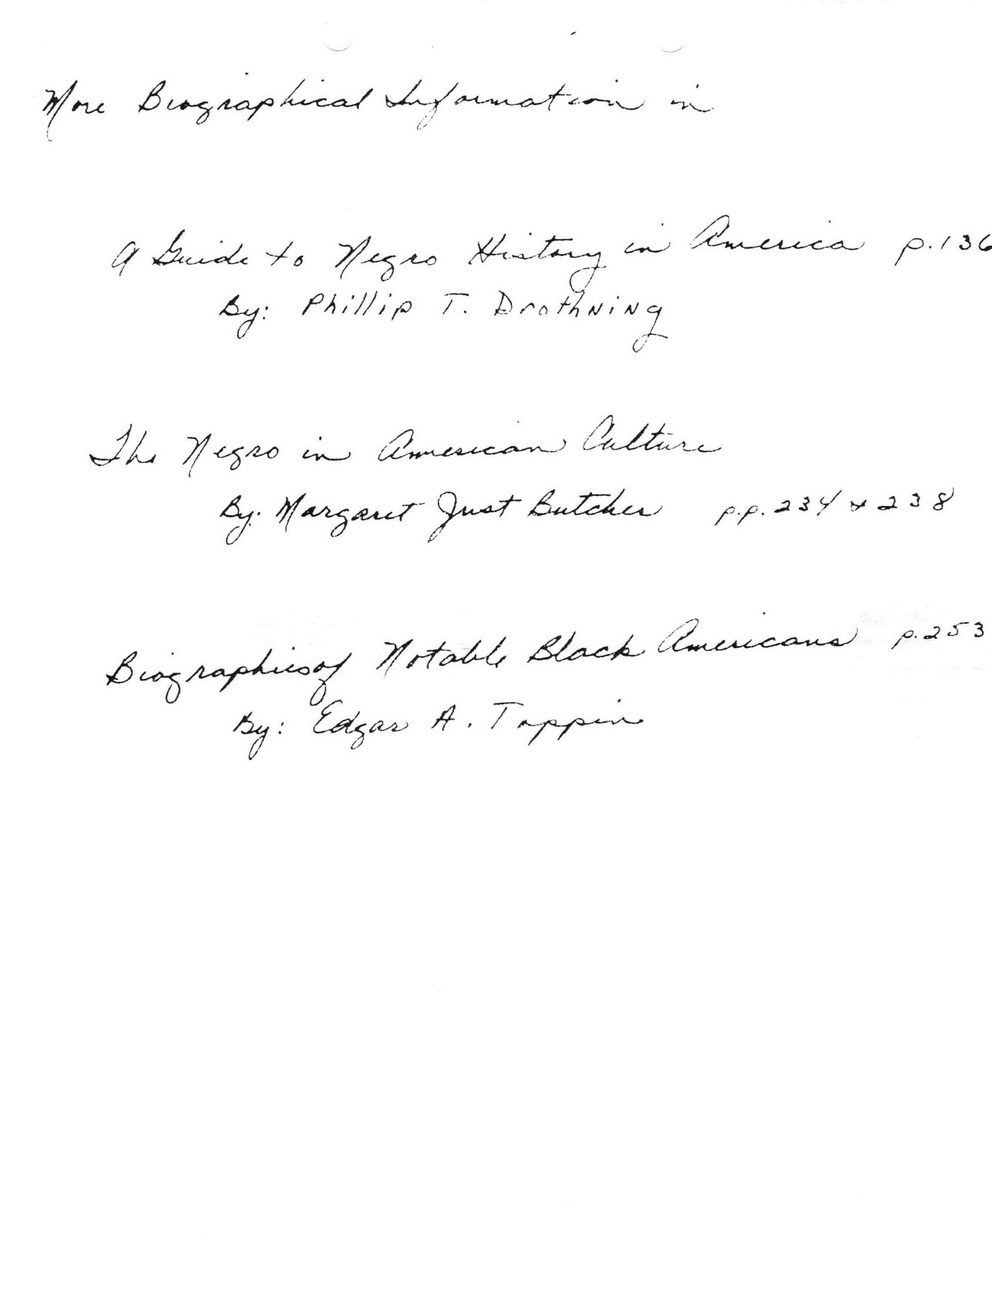 More Biographical Information in
A Guide to Negro History in America p.136
By: Phillip T. Drothning
The Negro in American Culture
By: Margaret Just Butcher p.p. 234 & 238
Biographies of Notable Black Americans p.253
By: Edgar A. Toppin